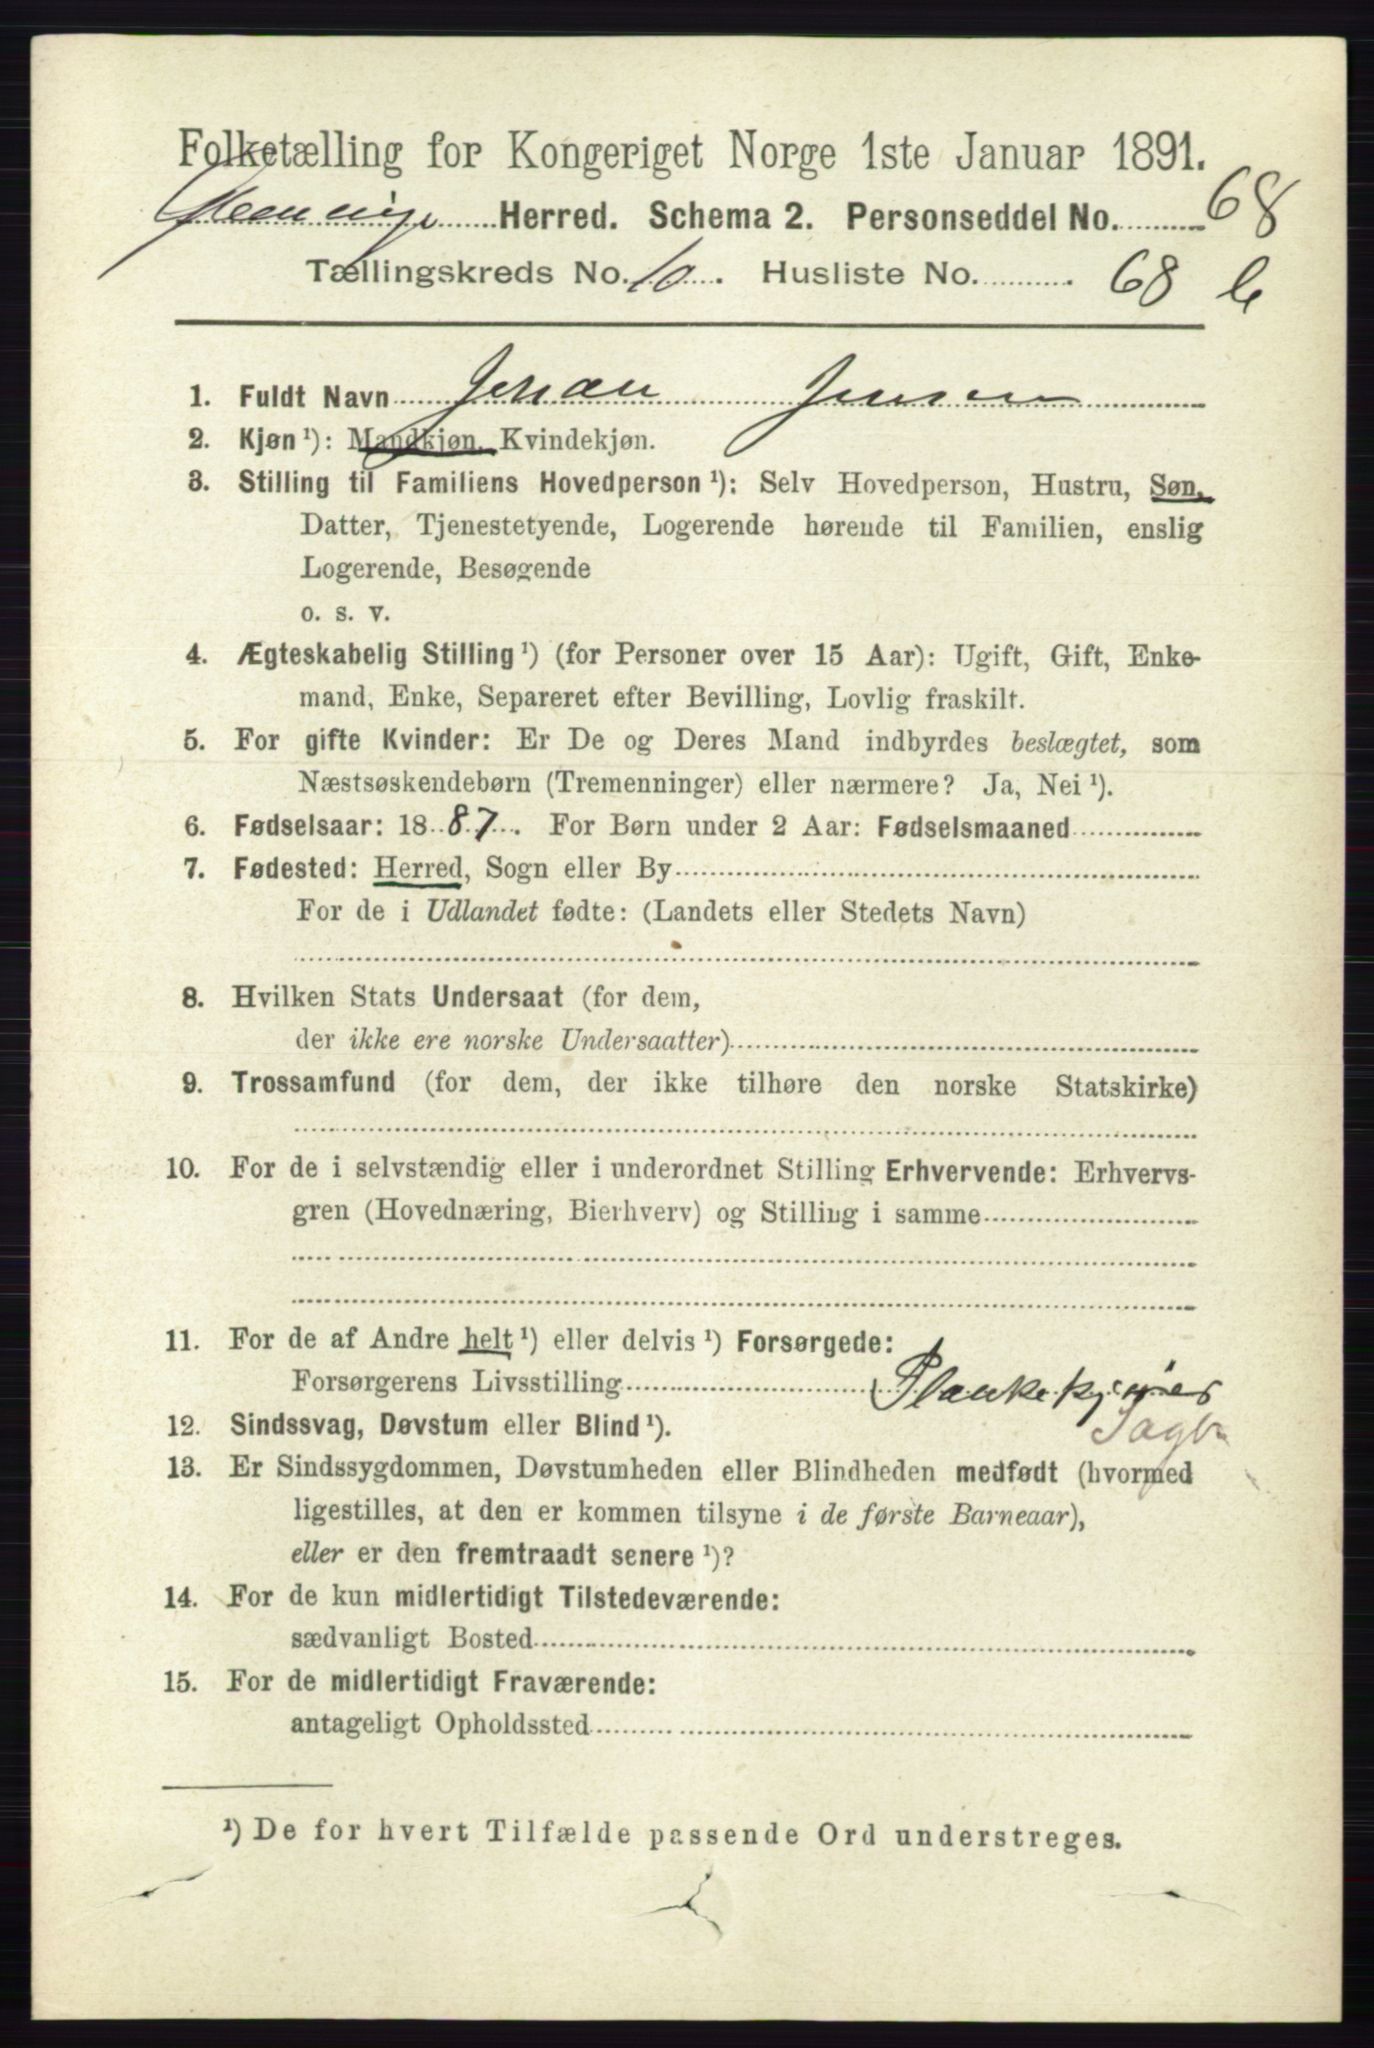 Folketælling for Kongeriget Norge 1ste Januar 1891.
Herred. Schema 2. Personseddel No. 68
Tællingskreds No. 10. Husliste No. 68
1. Fuldt Navn Johan Jensen
2. Kjøn ¹): Mandkjøn, Kvindekjøn.
3. Stilling til Familiens Hovedperson ¹): Selv Hovedperson, Hustru, Søn,
Datter, Tjenestetyende, Logerende hørende til Familien, enslig
Logerende, Besøgende
o. s. v.
4. Ægteskabelig Stilling ¹) (for Personer over 15 Aar): Ugift, Gift, Enke-
mand, Enke, Separeret efter Bevilling, Lovlig fraskilt.
5. For gifte Kvinder: Er De og Deres Mand indbyrdes beslægtet, som
Næstsøskendebørn (Tremenninger) eller nærmere? Ja, Nei ¹).
6. Fødselsaar: 1887. For Børn under 2 Aar: Fødselsmaaned
7. Fødested: Herred, Sogn eller By
For de i Udlandet fødte: (Landets eller Stedets Navn)
8. Hvilken Stats Undersaat (for dem,
der ikke ere norske Undersaatter)
9. Trossamfund (for dem, der ikke tilhøre den norske Statskirke)
10. For de i selvstændig eller i underordnet Stilling Erhvervende: Erhvervs-
gren (Hovednæring, Bierhverv) og Stilling i samme
11. For de af Andre helt ¹) eller delvis ¹) Forsørgede:
Forsørgerens Livsstilling Plankekjører
Sagbr
12. Sindssvag, Døvstum eller Blind ¹).
13. Er Sindssygdommen, Døvstumheden eller Blindheden medfødt (hvormed
ligestilles, at den er kommen tilsyne i de første Barneaar),
eller er den fremtraadt senere ¹)?
14. For de kun midlertidigt Tilstedeværende:
sædvanligt Bosted
15. For de midlertidigt Fraværende:
antageligt Opholdssted
¹) De for hvert Tilfælde passende Ord understreges.